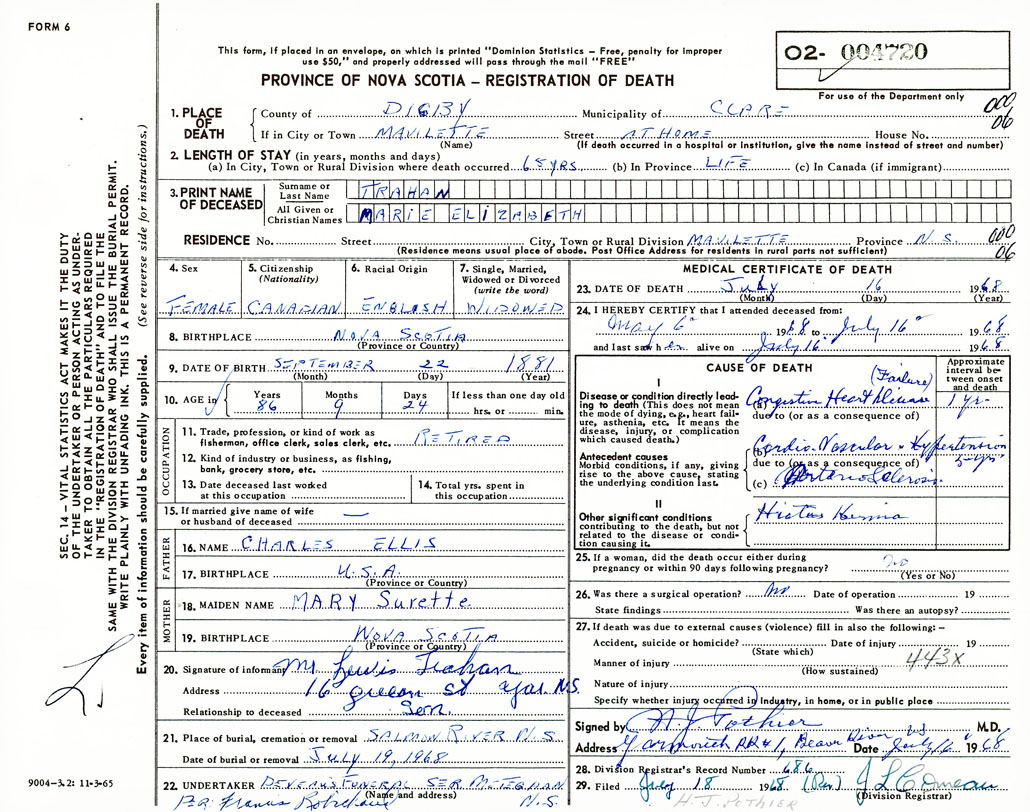 FORM 6
This form, if placed in an envelope, on which is printed "Dominion Statistics – Free, penalty for improper
use $50," and properly addressed will pass through the mail "FREE"
PROVINCE OF NOVA SCOTIA – REGISTRATION OF DEATH
O2- 004720
For use of the Department only
000
06
1. PLACE OF DEATH { County of DIGBY Municipality of CLARE
If in City or Town MAVILETTE Street AT HOME House No.
(Name) (If death occurred in a hospital or institution, give the name instead of street and number)
2. LENGTH OF STAY (in years, months and days)
(a) In City, Town or Rural Division where death occurred 65 YRS (b) In Province LIFE (c) In Canada (if immigrant)
3. PRINT NAME OF DECEASED { Surname or Last Name TRAHAN
All Given or Christian Names MARIE ELIZABETH
RESIDENCE No. Street City, Town or Rural Division MAVILETTE Province N.S.
(Residence means usual place of abode. Post Office Address for residents in rural parts not sufficient)
000
06
4. Sex 5. Citizenship (Nationality) 6. Racial Origin 7. Single, Married, Widowed or Divorced (write the word)
FEMALE CANADIAN ENGLISH WIDOWED
8. BIRTHPLACE NOVA SCOTIA
(Province or Country)
9. DATE OF BIRTH SEPTEMBER 22 1881
(Month) (Day) (Year)
10. AGE in { Years Months Days If less than one day old
86 9 24 hrs. or min.
OCCUPATION
11. Trade, profession, or kind of work as
fisherman, office clerk, sales clerk, etc. RETIRED
12. Kind of industry or business, as fishing,
bank, grocery store, etc.
13. Date deceased last worked
at this occupation
14. Total yrs. spent in
this occupation
15. If married give name of wife
or husband of deceased —
FATHER
16. NAME CHARLES ELLIS
17. BIRTHPLACE U.S.A.
(Province or Country)
MOTHER
18. MAIDEN NAME MARY Surette
19. BIRTHPLACE NOVA SCOTIA
(Province or Country)
20. Signature of informant Mr Lewis Trahan
Address 16 green st Yar. N.S.
Relationship to deceased Son.
21. Place of burial, cremation or removal SALMON RIVER N.S.
Date of burial or removal JULY 19, 1968
22. UNDERTAKER DEVEAU'S FUNERAL SER METEGHAN
(Name and address)
Per Francis N.S.
MEDICAL CERTIFICATE OF DEATH
23. DATE OF DEATH July 16 1968
(Month) (Day) (Year)
24. I HEREBY CERTIFY that I attended deceased from:
May 6th 1968 to July 16th 1968
and last saw her alive on July 16 1968
CAUSE OF DEATH
Approximate interval between onset and death
I
Disease or condition directly leading to death (This does not mean the mode of dying, e.g., heart failure, asthenia, etc. It means the disease, injury, or complication which caused death.)
(a) Congestive Heart Disease (Failure) 1 yr-
due to (or as a consequence of)
Antecedent causes
Morbid conditions, if any, giving rise to the above cause, stating the underlying condition last.
(b) Cardio-Vascular - Hypertension 5-yrs
due to (or as a consequence of)
(c) ArterioSclerosis
II
Other significant conditions contributing to the death, but not related to the disease or condition causing it.
Hiatus Hernia
25. If a woman, did the death occur either during
pregnancy or within 90 days following pregnancy? no
(Yes or No)
26. Was there a surgical operation? no Date of operation 19
State findings Was there an autopsy?
27. If death was due to external causes (violence) fill in also the following: –
Accident, suicide or homicide? Date of injury 19
(State which)
Manner of injury 443X
(How sustained)
Nature of injury
Specify whether injury occurred in industry, in home, or in public place
Signed by A. J. Pothier M.D.
Address Yarmouth RR#1, Beaver River NS Date July 16 1968
28. Division Registrar's Record Number 686
29. Filed July 18 1968 (Rev) J L Comeau
(Division Registrar)
H. J. POTHIER
SEC. 14 – VITAL STATISTICS ACT MAKES IT THE DUTY
OF THE UNDERTAKER OR PERSON ACTING AS UNDER-
TAKER TO OBTAIN ALL THE PARTICULARS REQUIRED
IN THE "REGISTRATION OF DEATH" AND TO FILE THE
SAME WITH THE DIVISION REGISTRAR WHO SHALL ISSUE THE BURIAL PERMIT.
WRITE PLAINLY WITH UNFADING INK. THIS IS A PERMANENT RECORD.
Every item of information should be carefully supplied. (See reverse side for instructions.)
9004-3.2: 11-3-65